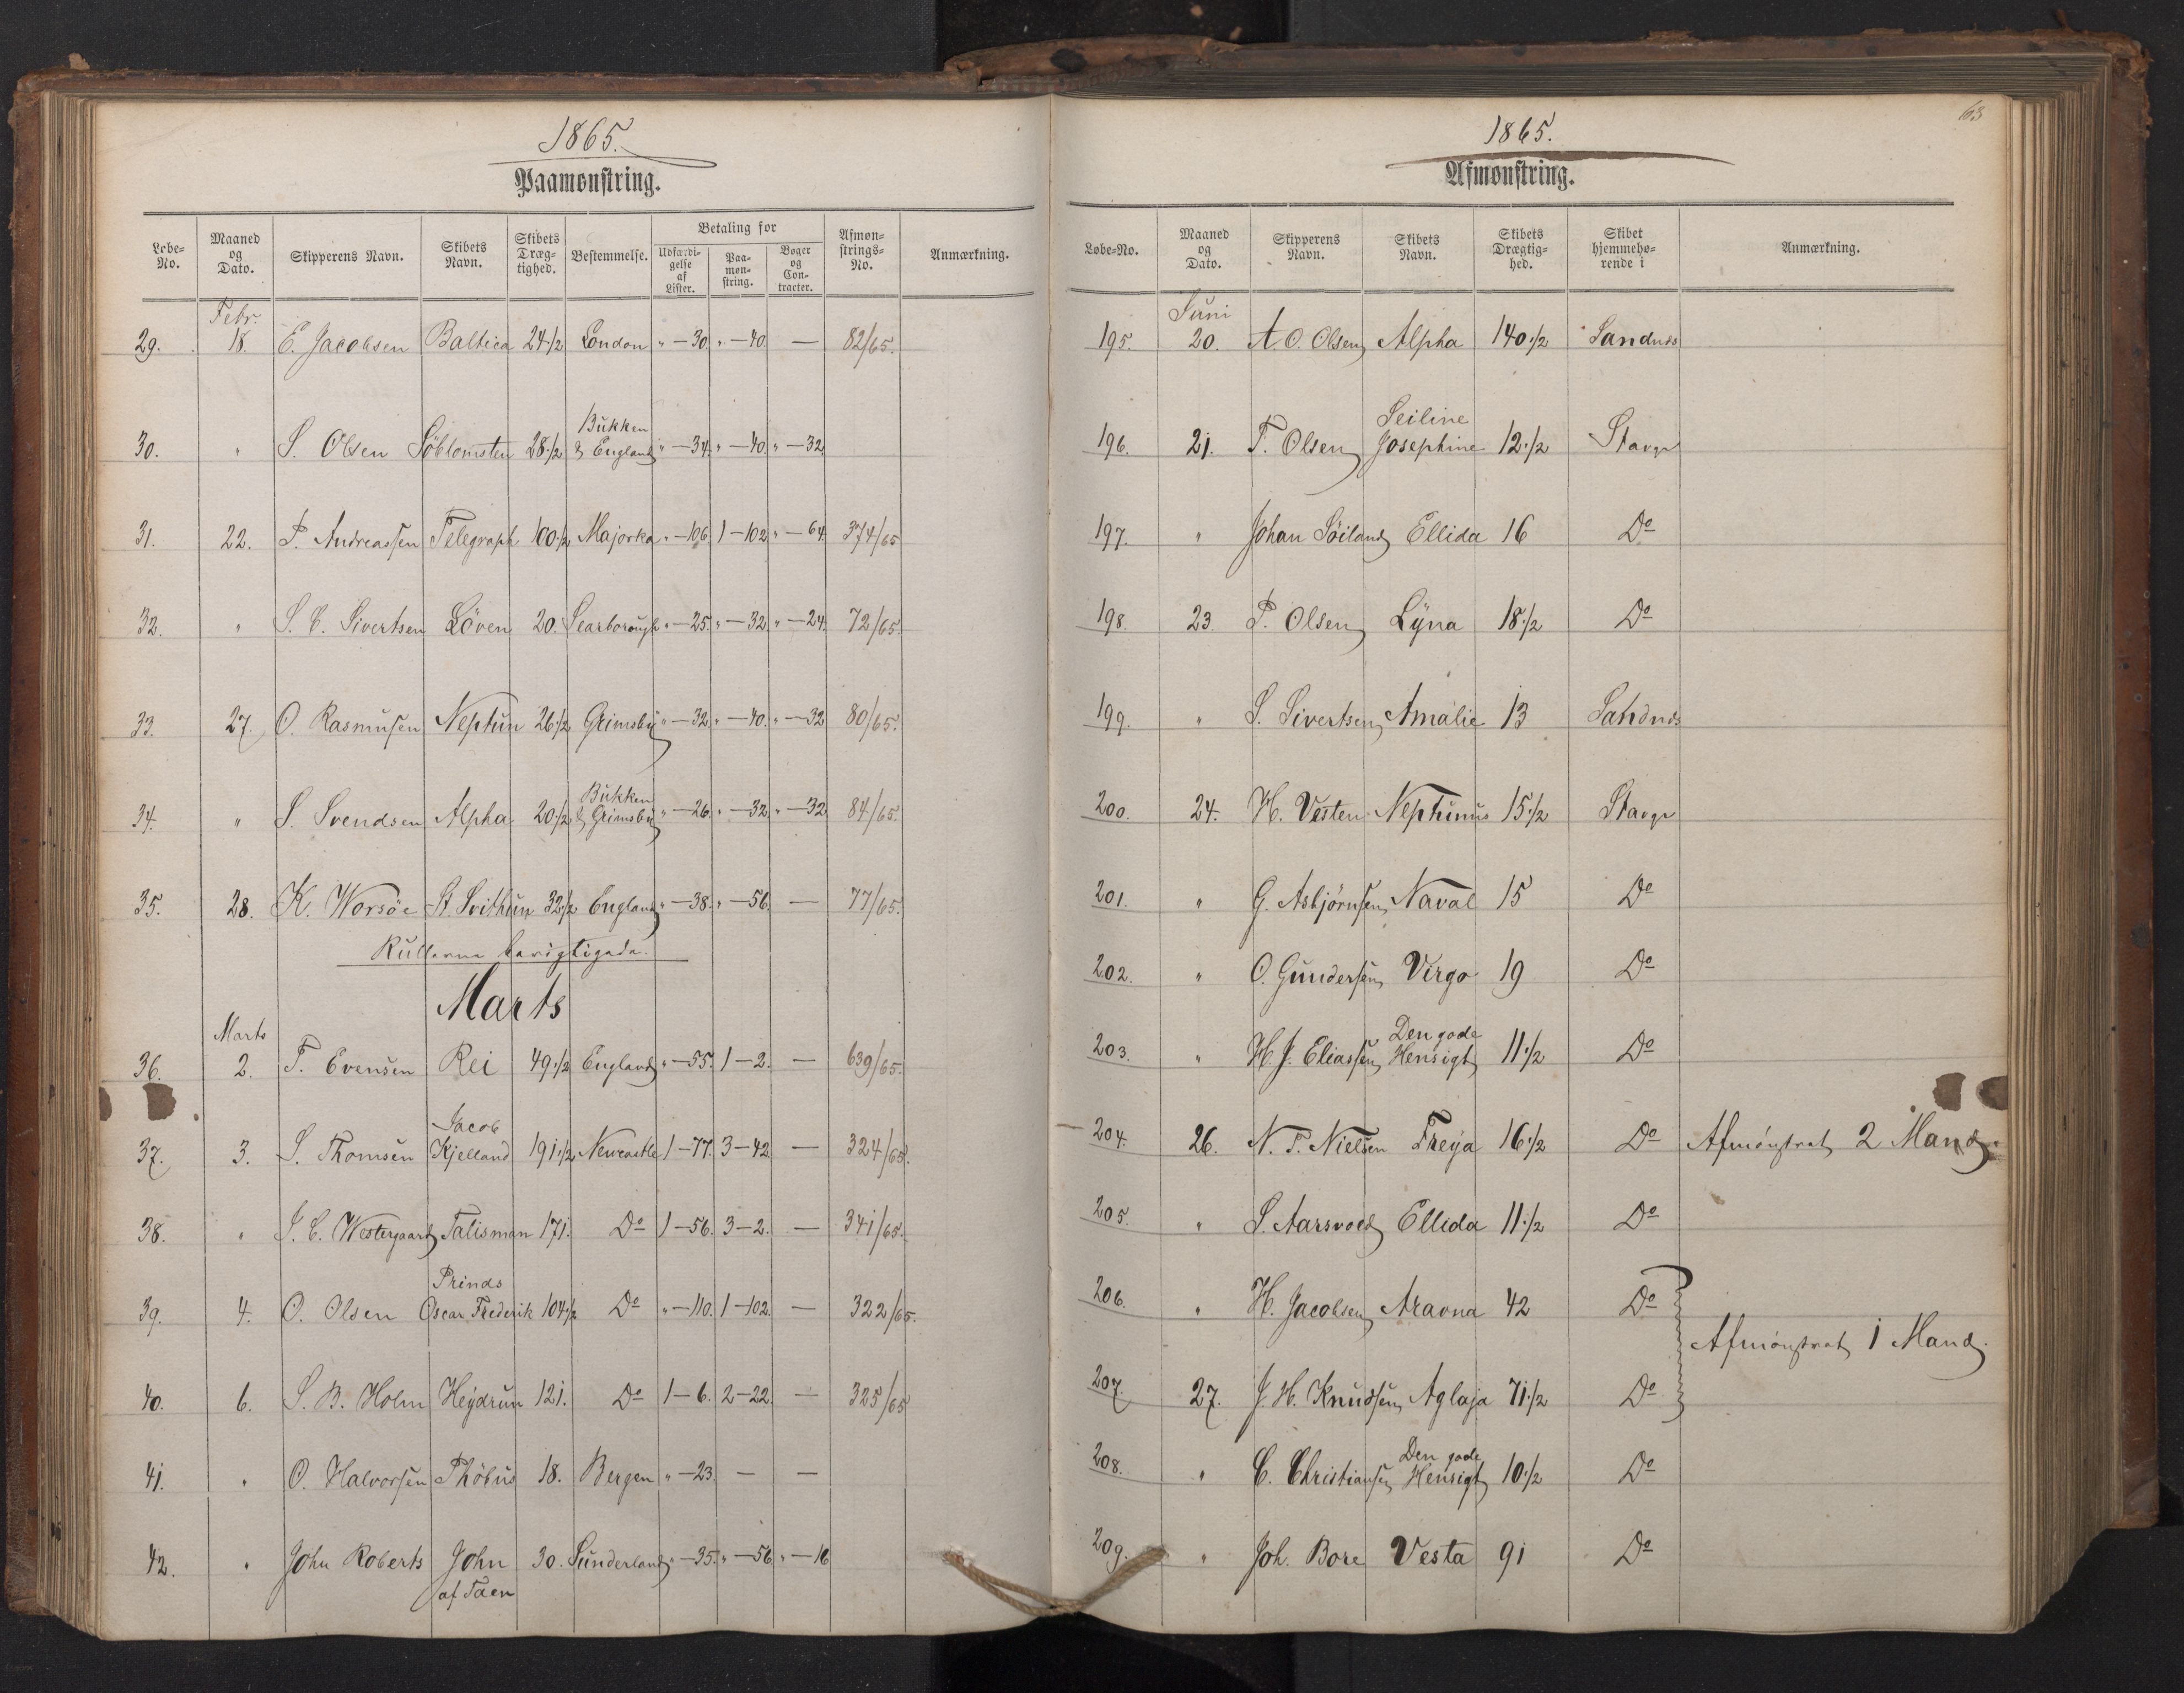 1865.
Paamønstring.
Løbe-No. | Maaned og Dato. | Skipperens Navn. | Skibets Navn. | Skibets Dræg-tighed. | Bestemmelse. | Betaling for | Udfærdi-gelse af Lister. | Paa-møn-string. | Bøger og Con-tracter. | Afmøn-strings-No. | Anmærkning.
Febr.
29. 18. E. Jacobsen Baltica 24 1/2 London " — 30. " — 40. — 82/65.
30. " S. Olsen Söblomsten 28 1/2 Bukken & England " — 34. " — 40. " — 32.
31. 22. P. Andreassen Telegraph 100 1/2 Majorka " — 106. 1 — 102. " — 64. 374/65
32. " S. C. Sivertsen Löven 20. Scarborough " — 25. " — 32. " — 24. 72/65.
33. 27. O. Rasmusen Neptun 26 1/2 Grimsby " — 32. " — 40. " — 32 80/65.
34. " S. Svendsen Alpha 20 1/2 Bukken & Grimsby " — 26. " — 32. " — 32 84/65.
35. 28. K. Worsöe St. Svithun 32 1/2 England " — 38. " — 56. — 77/65.
Rullerne berigtigede.
Marts
Marts
36. 2. T. Evensen Rei 49 1/2 England " — 55. 1 — 2. — 639/65.
37. 3. S. Thomsen Jacob Kjelland 191 1/2 Newcastle 1 — 77. 3 — 42 — 324/65.
38. " J. C. Westergaard Talisman 171. Do 1 — 56. 3 — 2. — 341/65.
39. 4. O. Olsen Prinds Oscar Frederik 104 1/2 Do " — 110. 1 — 102. — 322/65.
40. 6. S. B. Holm Heydrun 121. Do 1 — 6. 2 — 22. — 325/65
41. " O. Halvorsen Phöbus 18. Bergen " — 23. — —
42. " John Roberts John af Faen 30. Sunderland " — 35. " — 56. " — 16
63
1865.
Afmønstring.
Løbe-No. | Maaned og Dato. | Skipperens Navn. | Skibets Navn. | Skibets Drægtig-hed. | Skibet hjemmehø-rende i | Anmærkning.
Juni
195. 20. A. O. Olsen Alpha 140 1/2 Sandnes
196. 21. T. Olsen Seiline Josephine 12 1/2 Stavgr
197. " Johan Söiland Ellida 16 Do
198. 23. P. Olsen Lyna 18 1/2 Do
199. " S. Sivertsen Amalie 13 Sandnes
200. 24. H. Vesten Neptunus 15 1/2 Stavgr
201. " G. Asbjørnsen Naval 15 Do
202. " O. Gundersen Virgo 19 Do
203. " H. J. Eliassen Den gode Hensigt 11 1/2 Do
204. 26. N. T. Nielsen Freya 16 1/2 Do Afmønstret 2 Mand.
205. " S. Aarsvold Ellida 11 1/2 Do
206. " H. Jacobsen Aravna 42 Do
Afmønstret 1 Mand.
207. 27. J. H. Knudsen Aglaja 71 1/2 Do
208. " C. Christiansen Den gode Hensigt 10 1/2 Do
209. " Joh. Bore Vesta 91 Do